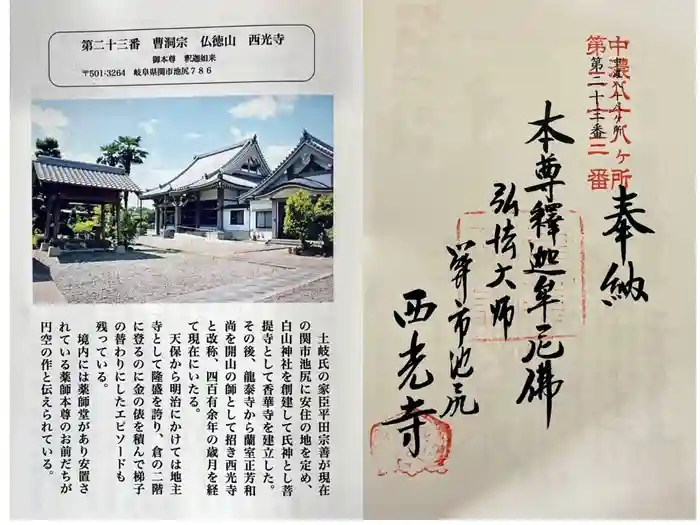 第二十三番　曹洞宗　仏徳山　西光寺
御本尊　釈迦如来
〒501-3264　岐阜県関市池尻７８６
土岐氏の家臣平田宗善が現在
の関市池尻に安住の地を定め、
白山神社を創建して氏神とし菩
提寺として香華寺を建立した。
その後、龍泰寺から蘭室正芳和
尚を開山の師として招き西光寺
と改称、四百有余年の歳月を経
て現在にいたる。
天保から明治にかけては地主
寺として隆盛を誇り、倉の二階
に登るのに金の俵を積んで梯子
の替わりにしたエピソードも
残っている。
境内には薬師堂があり安置さ
れている薬師本尊のお前だちが
円空の作と伝えられている。
奉納
中濃八十八ヶ所
第二十三番
本尊釋迦牟尼佛
弘法大師
関市池尻
西光寺